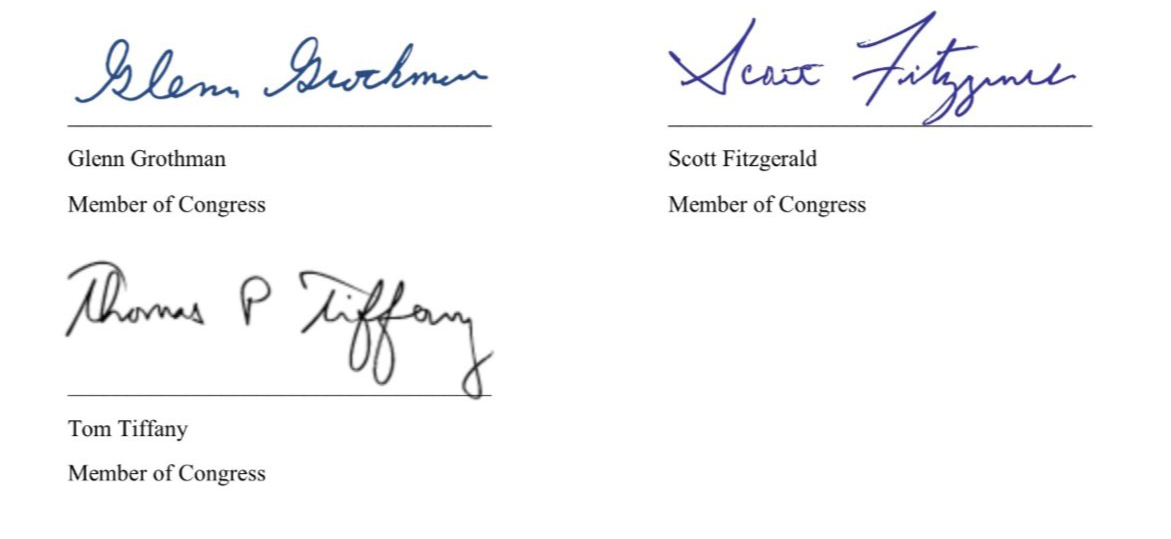 Glenn Grothman
Scott Fitzgerald
Glenn Grothman
Scott Fitzgerald
Member of Congress
Member of Congress
Thomas P Tiffany
Tom Tiffany
Member of Congress